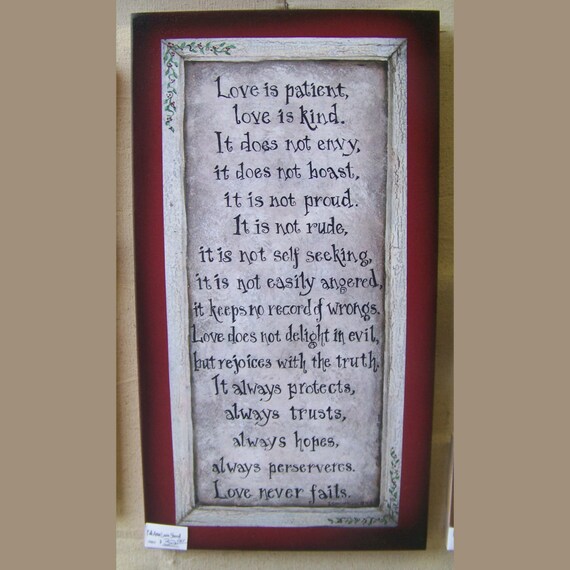 Love is patient,
love is kind.
It does not envy,
it does not boast,
it is not proud.
It is not rude,
it is not self seeking,
it is not easily angered,
it keeps no record of wrongs.
Love does not delight in evil,
but rejoices with the truth.
It always protects,
always trusts,
always hopes,
always perserveres.
Love never fails.